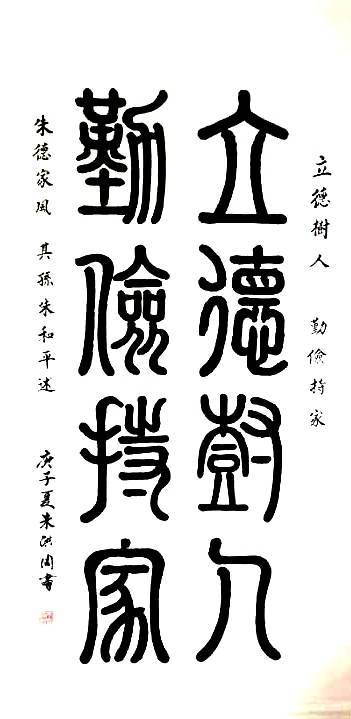 立德樹人 勤儉持家
立德樹人
勤儉持家
朱德家風 其孫朱和平述
庚子夏朱洪園書